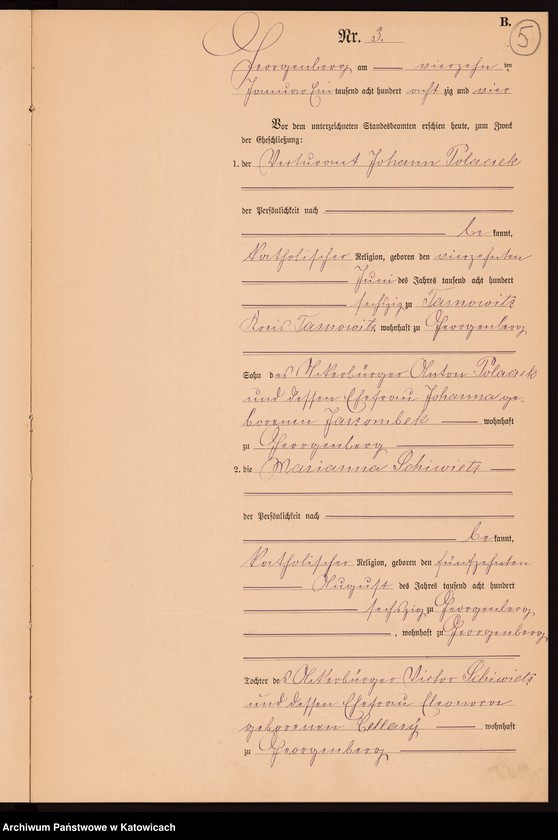 B.
5
Nr. 3.
Georgenberg am vierzehn ten
Januar Ein tausend acht hundert acht zig und vier
Vor dem unterzeichneten Standesbeamten erschien heute, zum Zweck
der Eheschließung:
1. der Johann Polaczek
der Persönlichkeit nach
be kannt,
katholischer Religion, geboren den vierzehnten
Juni des Jahres tausend acht hundert
sechszig zu Tarnowitz
Kreis Tarnowitz, wohnhaft zu Georgenberg
Sohn des Ackerbürger Anton Polaczek
und dessen Ehefrau Johanna ge-
borenen Jarzombek wohnhaft
zu Georgenberg
2. die Marianna Schiwietz
der Persönlichkeit nach
be kannt,
katholischer Religion, geboren den fünfzehnten
August des Jahres tausend acht hundert
sechszig zu Georgenberg
, wohnhaft zu Georgenberg
Tochter des Ackerbürger Victor Schiwietz
und dessen Ehefrau Eleonora
geborenen Cellary wohnhaft
zu Georgenberg
Archiwum Państwowe w Katowicach